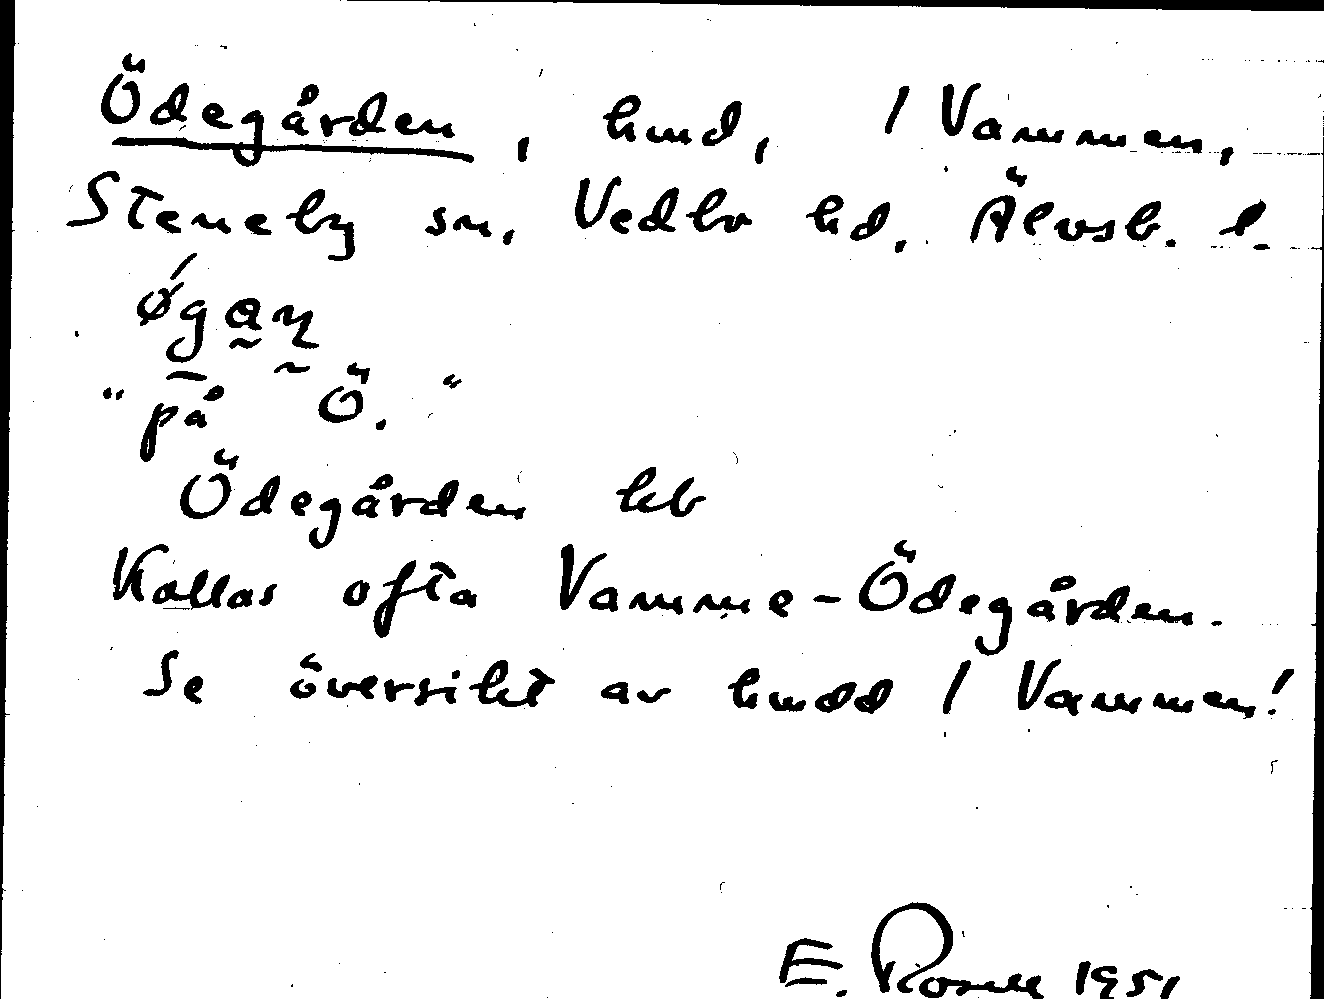 Ödegården, hmd, / Vammen,
Steneby sn. Vedbo hd. Älvsb. l.
"på Ö."
Ödegården kb
Kallas ofta Vamme-Ödegården.
Se översikt av hmdd / Vammen!
E. Rosell 1951